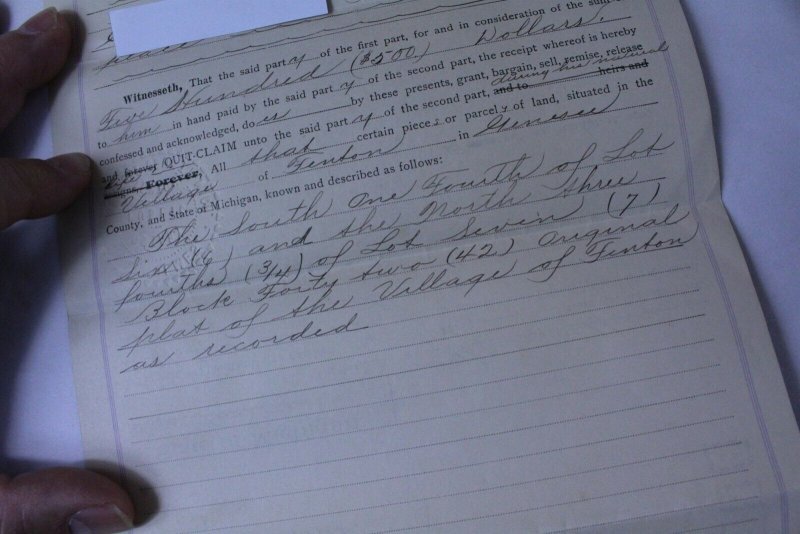 place
Witnesseth, That the said party of the first part, for and in consideration of the sum of
Five Hundred ($500) Dollars,
to him in hand paid by the said party of the second part, the receipt whereof is hereby
confessed and acknowledged, does by these presents, grant, bargain, sell, remise, release
during his natural
and forever QUIT-CLAIM unto the said party of the second part, and to heirs and
life
assigns, Forever, All that certain piece s or parcel s of land, situated in the
Village of Fenton in Genesee
County, and State of Michigan, known and described as follows:
The South One Fourth of Lot
Six (6) and the North three
fourths (3/4) of Lot Seven (7)
Block Forty two (42) Original
plat of the Village of Fenton
as recorded